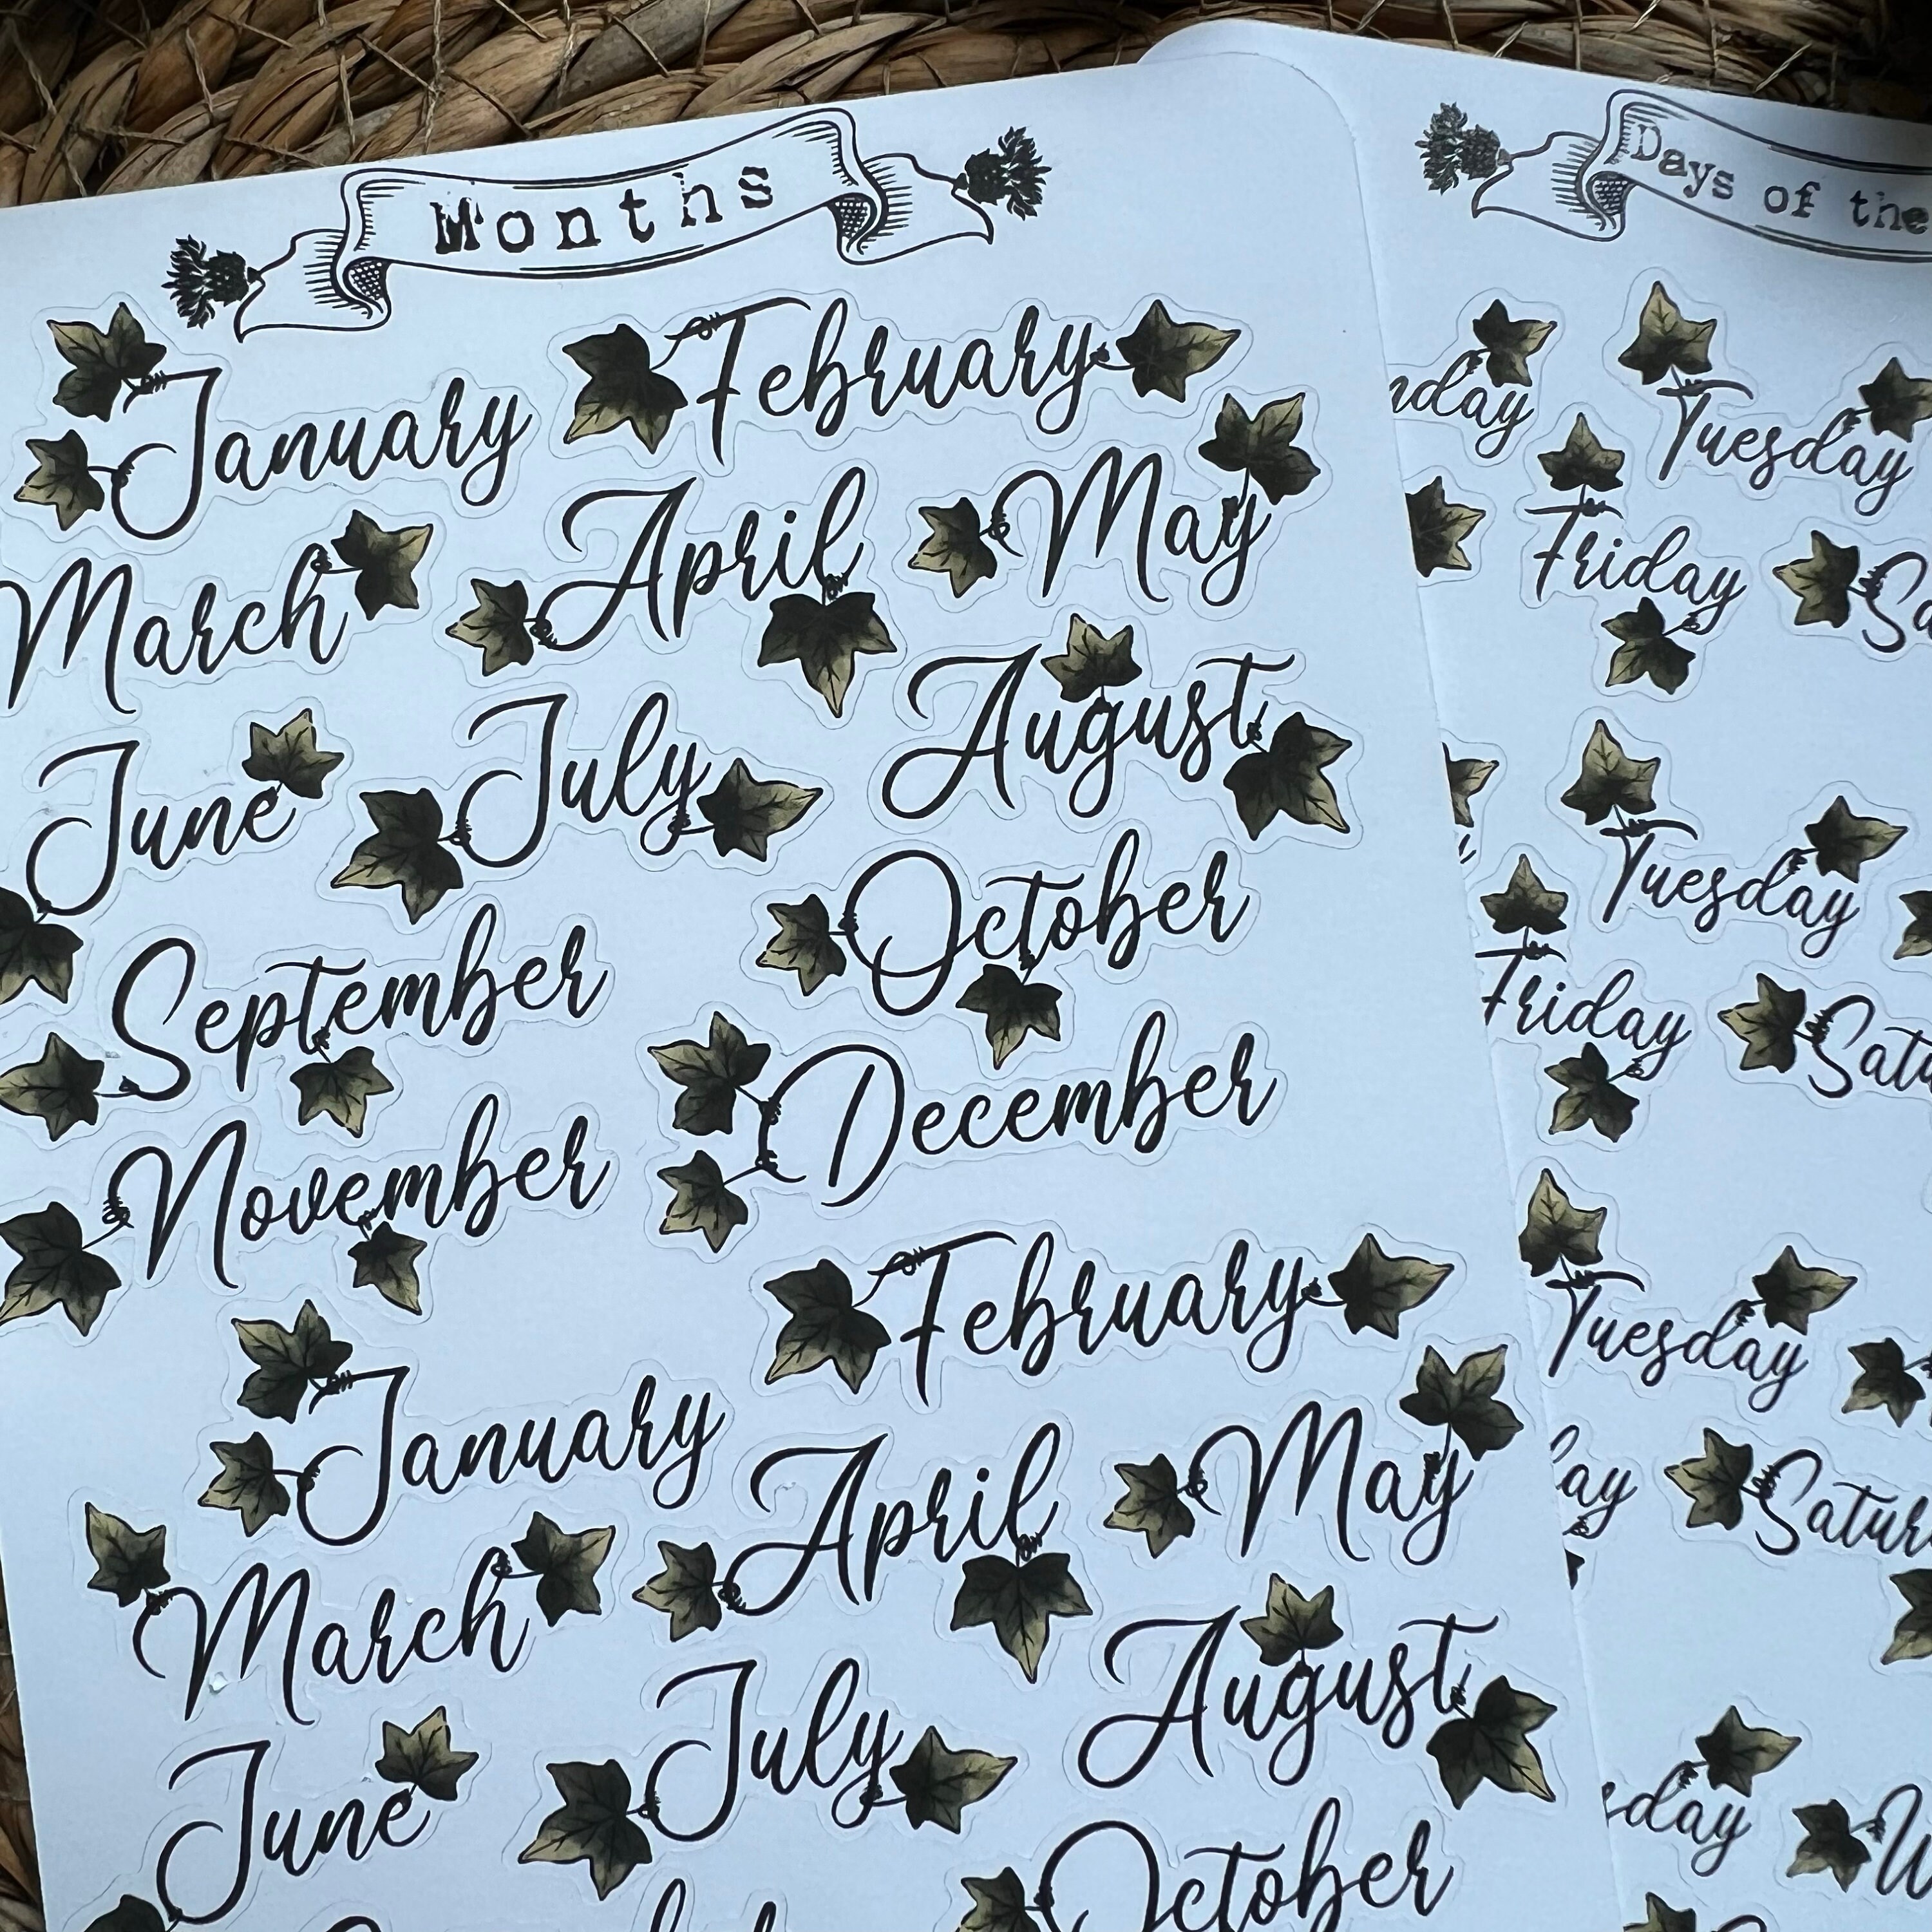 Months
January
February
March
April
May
June
July
August
September
October
November
December
January
February
March
April
May
June
July
August
October
Days of the
Tuesday
Friday
Tuesday
Friday
Tuesday